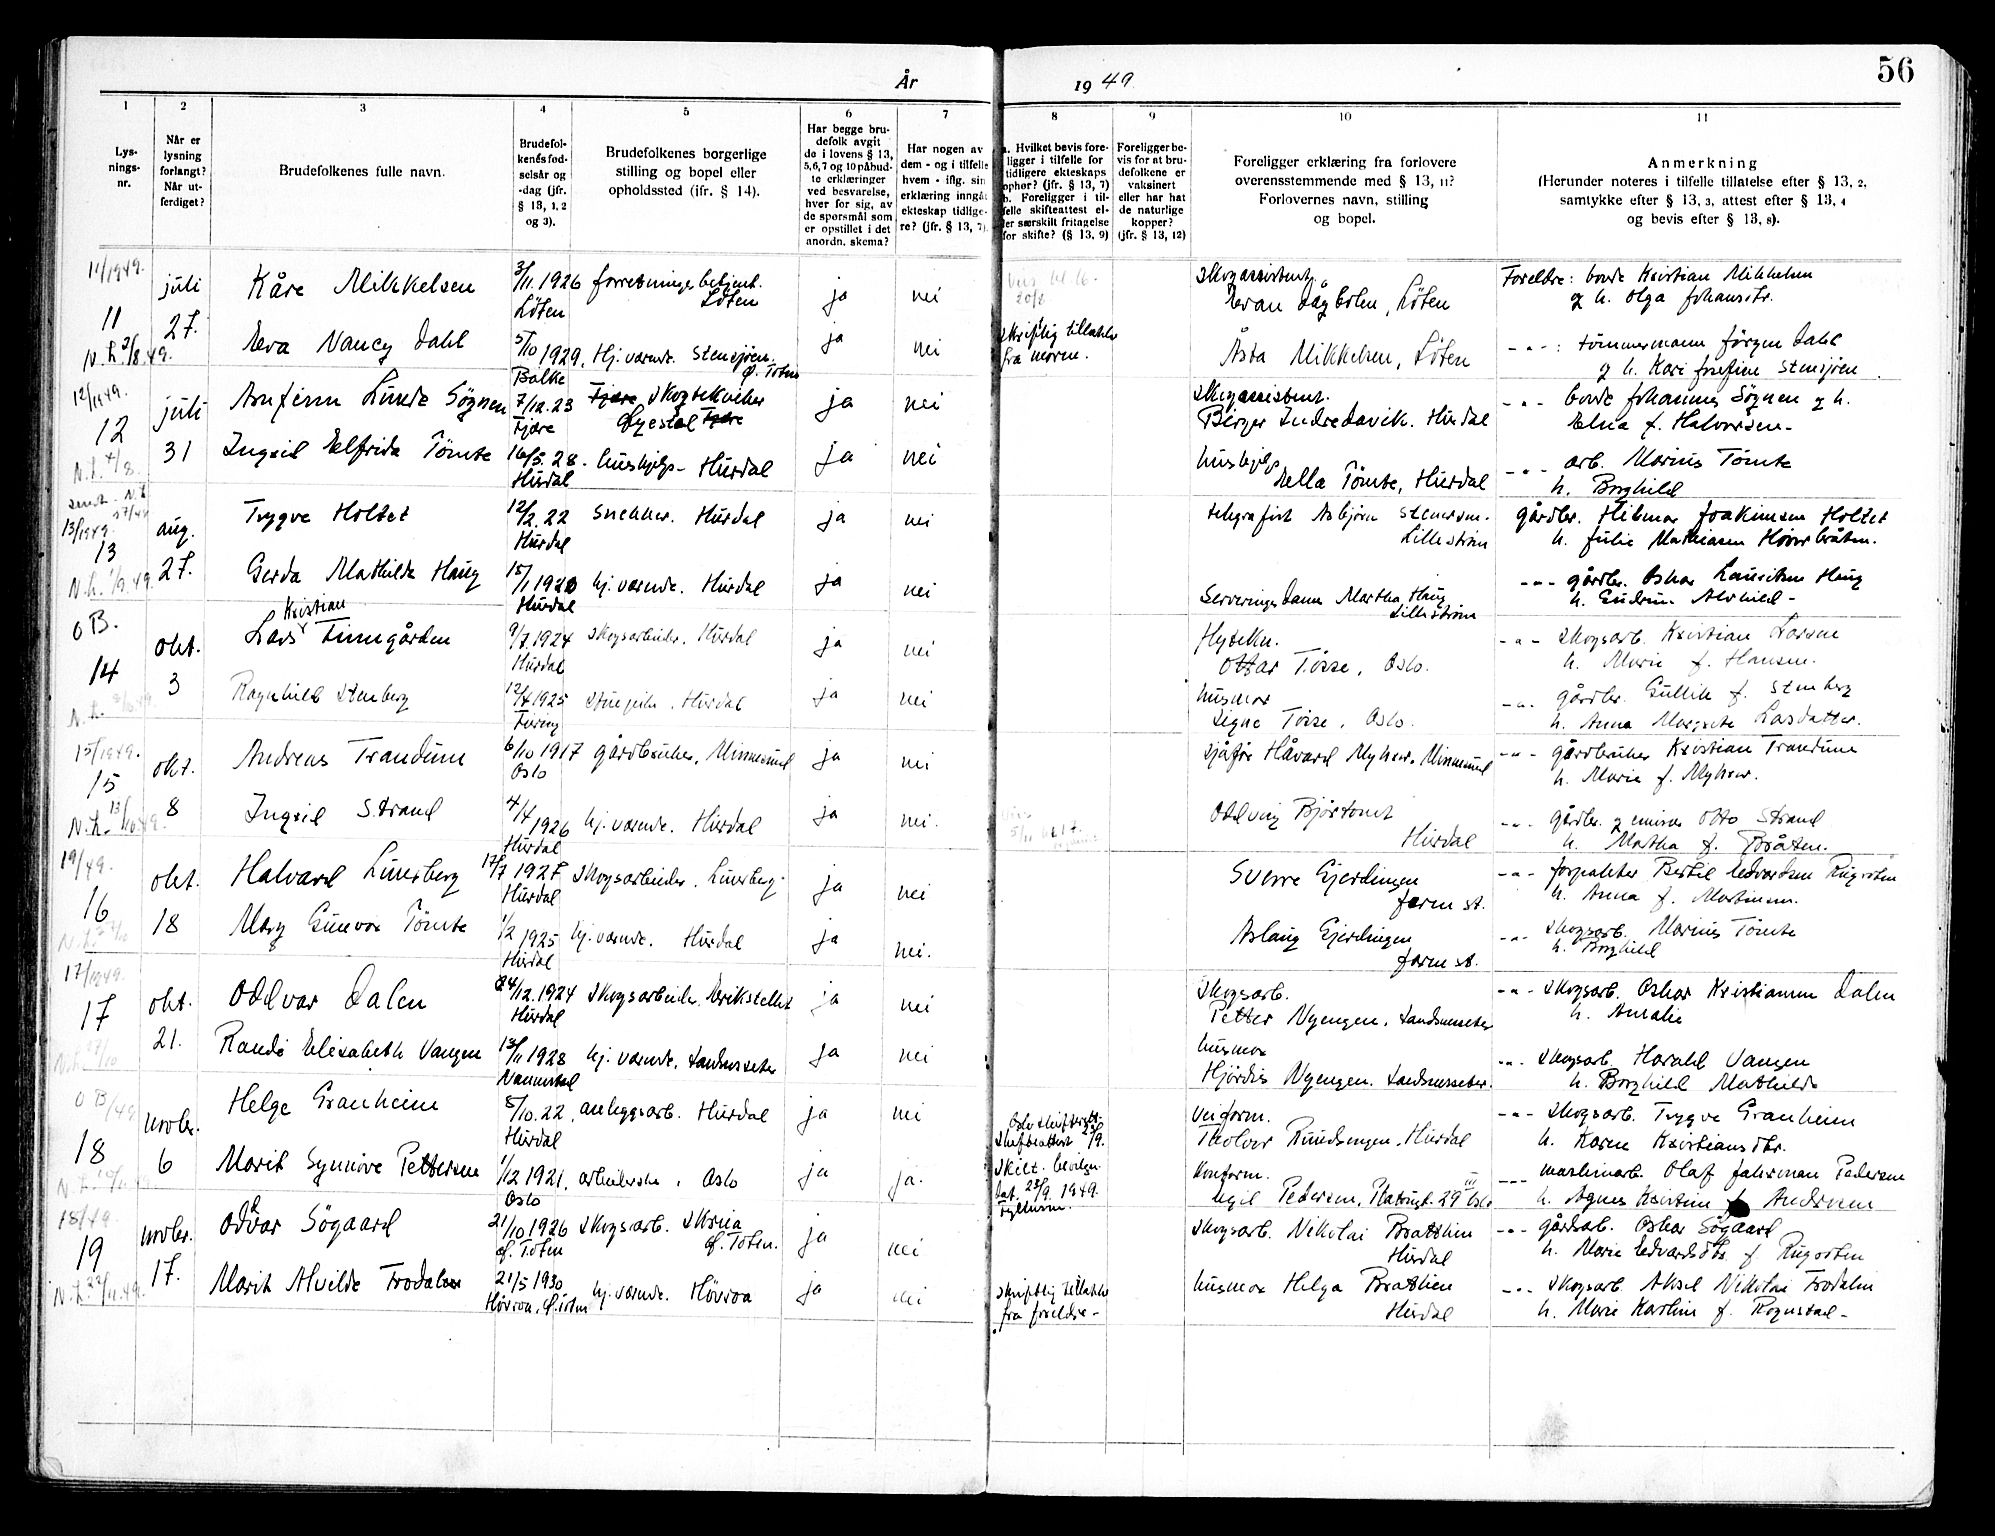 56
År 1949
1 2 3 4 5 6 7 8 9 10 11
Lysningsnr.
Når er lysning forlangt? Når utferdiget?
Brudefolkenes fulle navn.
Brudefolkenes fødselsår og -dag (jfr. § 13, 1, 2 og 3).
Brudefolkenes borgerlige stilling og bopel eller opholdssted (ifr. § 14).
Har begge brudefolk avgit de i lovens § 13, 5,6,7 og 10 påbudte erklæringer ved besvarelse, hver for sig, av de spørsmål som er opstillet i det anordn. skema?
Har nogen av dem - og i tilfelle hvem - iflg. sin erklæring inngått ekteskap tidligere? (jfr. § 13, 7)
a. Hvilket bevis foreligger i tilfelle for tidligere ekteskaps ophør? (jfr. § 13, 7) b. Foreligger i tilfelle skifteattest eller særskilt fritagelse for skifte? (§ 13, 9)
Foreligger bevis for at brudefolkene er vaksinert eller har hat de naturlige kopper? (jfr. § 13, 12)
Foreligger erklæring fra forlovere overensstemmende med § 13, 11? Forlovernes navn, stilling og bopel.
Anmerkning (Herunder noteres i tilfelle tillatelse efter § 13, 2, samtykke efter § 13, 3, attest efter § 13, 4 og bevis efter § 13, 8).
11/1949.
11 juli 27. Kåre Mikkelsen 3/11. 1926 Löten forretningsbetjent. Löten ja nei
skogassistent Evan Dågboln, Löten
Foreldre: bonde Kristian Mikkelsen og h. Olga Johansdtr.
N.h. 2/8.49. Eva Nancy Dahl 5/10 1929, Balke Hj. værende. Stensjøen. Ø. Toten ja nei
skriftlig tillatelse fra morene.
Åsta Mikkelsen, Löten
-"-: tømmermann Jörgen Dahl og h. Kari Josefine Stensjöen.
12/1949.
12 juli 31 Arnfinn Linde Søgnen 7/12. 23 Fjære Fjære, skogtekniker Øyestad Fjære ja nei
skogassistent. Birger Indredavik. Hurdal
-"- bonde Johannes Søgnen og h. Elna f. Halvorsen-
N.h. 4/8. Ingrid Elfrida Tömte 16/5. 28. Hurdal hushjelp- Hurdal ja nei
hushjelp Nella Tömte, Hurdal
-"- arb. Marius Tömte h. Borghild
13/1949.
13 aug. 27. Trygve Holtet 12/2. 22 Hurdal snekker. Hurdal ja nei
telegrafist Asbjörn Stenersen. Lilleström
gårdbr. Hilmar Joakimsen Holtet h. Julie Mathiasen Höverbråten.
N.h. 1/9.49. Gerda Mathilde Haug 15/1 1920 Hurdal hj. værende. Hurdal ja nei
Serveringsdame Martha Haug Lilleström
-"- gårdbr. Oskar Lauritsen Haug h. Gudrun Alvhild-
OB.
14 okt. 3 Lars Kristian Finngården 9/7. 1924 Hurdal skogsarbeider. Hurdal ja nei
Flytekn. Ottar Tösse, Oslo.
-"- skogsarb. Kristian Larsen h. Marie f. Hansen.
N.h. Ragnhild Stenberg 12/4 1925 Feiring Stuepike. Hurdal ja nei
husmor Signe Tösse. Oslo.
-"- gårdbr. Gullik f. Stenberg h. Anna Margrete Larsdatter.
15/1949.
15 okt. 8 Andreas Trandum 6/10 1917 Oslo gårdbruker, Minnesund ja nei
Sjåför Håvard Myhrer. Minnesund
-"- gårdbruker Kristian Trandum h. Marie f. Myhrer.
N.h. 13/10.49. Ingrid Strand 4/4 1926 Hurdal hj. værende. Hurdal ja nei.
Oddving Björtomt Hurdal
-"- gårdbr. og Otto Strand h. Martha f. Bråten.
19/49.
16 okt. 18 Halvard Linerberg 17/7 1927 Hurdal Skogsarbeider. Linerberg. ja nei
Sverre Gjerdingen Jarenst.
-"- forpakter Bertil Edvardsen Rugsten h. Anna f. Martinsen.
Mary Gunvor Tömte 1/2 1925 Hurdal hj. værende. Hurdal ja nei.
Aslaug Gjerdingen Jarenst.
-"- skogsarb. Marius Tömte h. Borghild
17/1949.
17 okt. 21. Oddvar Dalen 24/12. 1924 Hurdal skogsarbeider. Erikstellet ja nei
Skogsarb. Petter Nyengen. Sandsnesseter
-"- skogsarb. Oskar Kristiansen Dalen h. Amalie
Randi Elisabeth Vangen 13/11 1928 Nannestad hj. værende. Sandnesseter ja nei
husmor Hjördis Nyengen. Sandsnesseter.
-"- skogsarb Harald Vangen h. Borghild Mathilde
OB/49.
18 novbr. 6 Helge Granheim 5/10. 22. Hurdal anleggsarb. Hurdal ja nei
Veiform. Tholver Rundsengen. Hurdal
-"- skogsarb. Trygve Granheim h. Karen Kristiansdtr.
Marit Synnöve Pettersen 1/12 1921. Oslo arbeiderske. Oslo ja ja.
Oslo skifterett Skifteattest 23/9. Skilt. bevilgn. dat. 28/9. 1949. Fylkesm.
Egil Pedersen, Platousgt. 29 III Oslo
-"- maskinarb. Olaf Pedersen h. Agnes Kristine f. Andersen
18/49.
19 novbr. 17. Odvar Sögaard 21/10 1926 Ø. Toten Skogsarb. Skreia Ø. Toten. ja nei
Skogsarb. Nikolai Bratthen Hurdal
-"- gårdsarb. Oskar Sögaard h. Marie Edvardsdtr. f. Rugsten
N.h. 22/11.49. Marit Alvilde Trodalen 21/5 1930 Hövroa. Ø. Toten hj. værende. Hövroa ja nei
skriftlig tillatelse fra foreldre-
husmor Helga Bratthen Hurdal
-"- skogsarb Aksel Nikolai Trodalen h. Marie Karoline f. Rognstad-